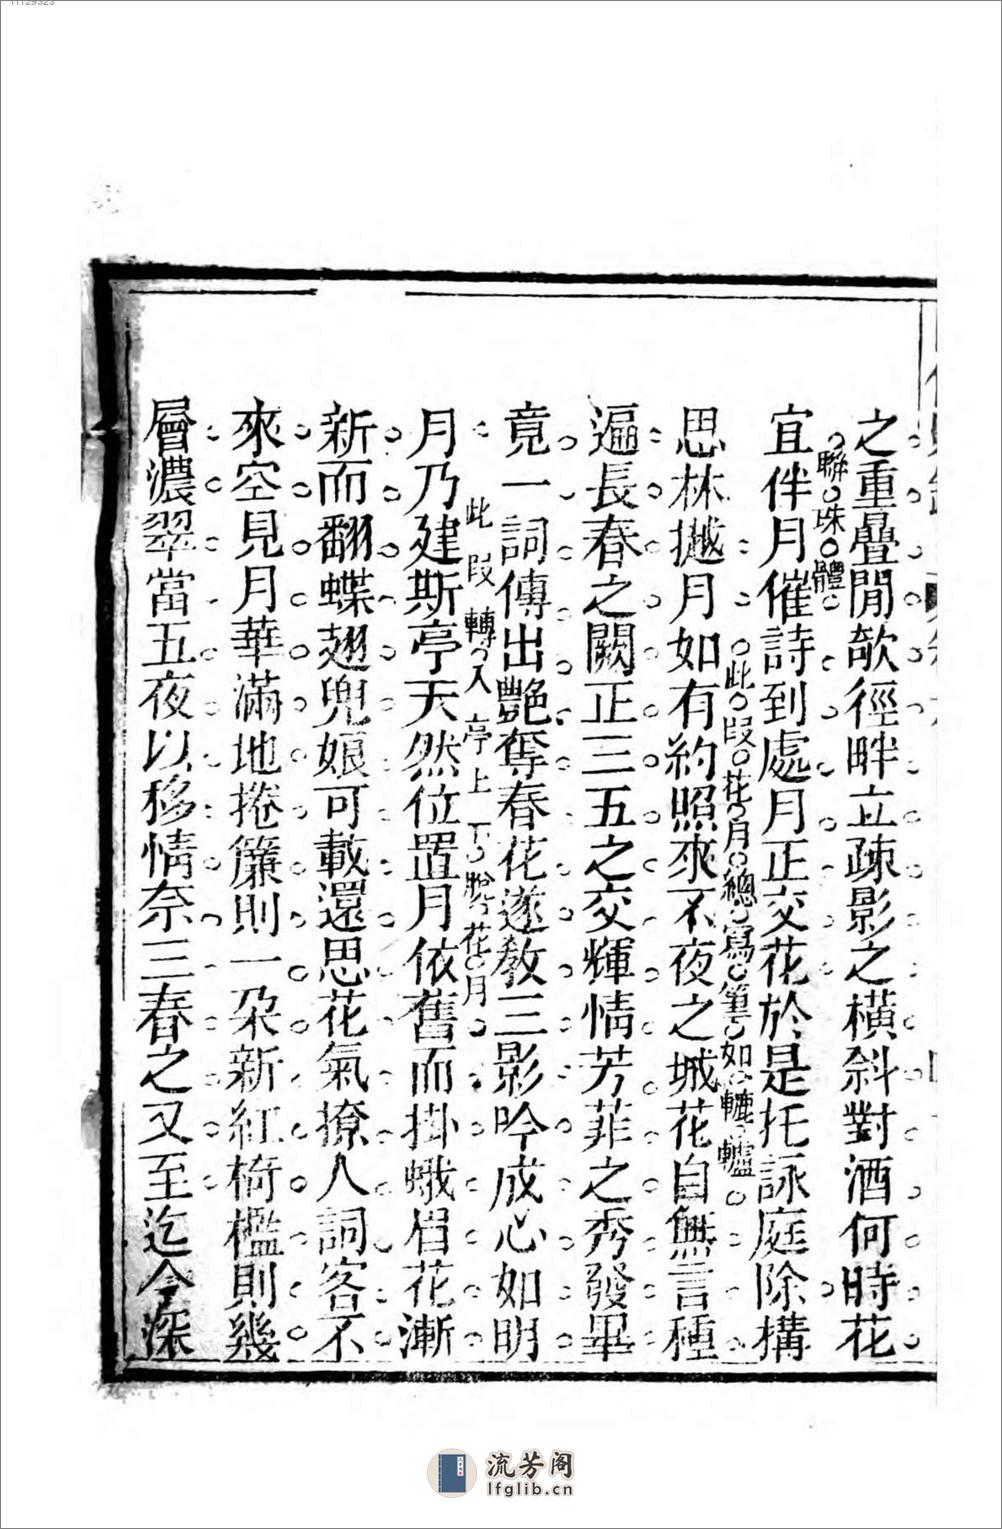 之重疊閒欹徑畔立疎影之橫斜對酒何時花
聯珠體
宜伴月催詩到處月正交花於是托詠庭除構
此段花月總寫筆如轆轤
思林樾月如有約照來不夜之城花自無言種
遍長春之闕正三五之交輝情芳菲之秀發畢
竟一詞傳出艷奪春花遂教三影吟成心如明
此段轉入亭上下 花月
月乃建斯亭天然位置月依舊而掛蛾眉花漸
新而翻蝶翅兜娘可載還思花氣撩人詞客不
來空見月華滿地捲簾則一朵新紅椅檻則幾
層濃翠當五夜以移情奈三春之又至迄今深
流芳阁
lfglib.cn